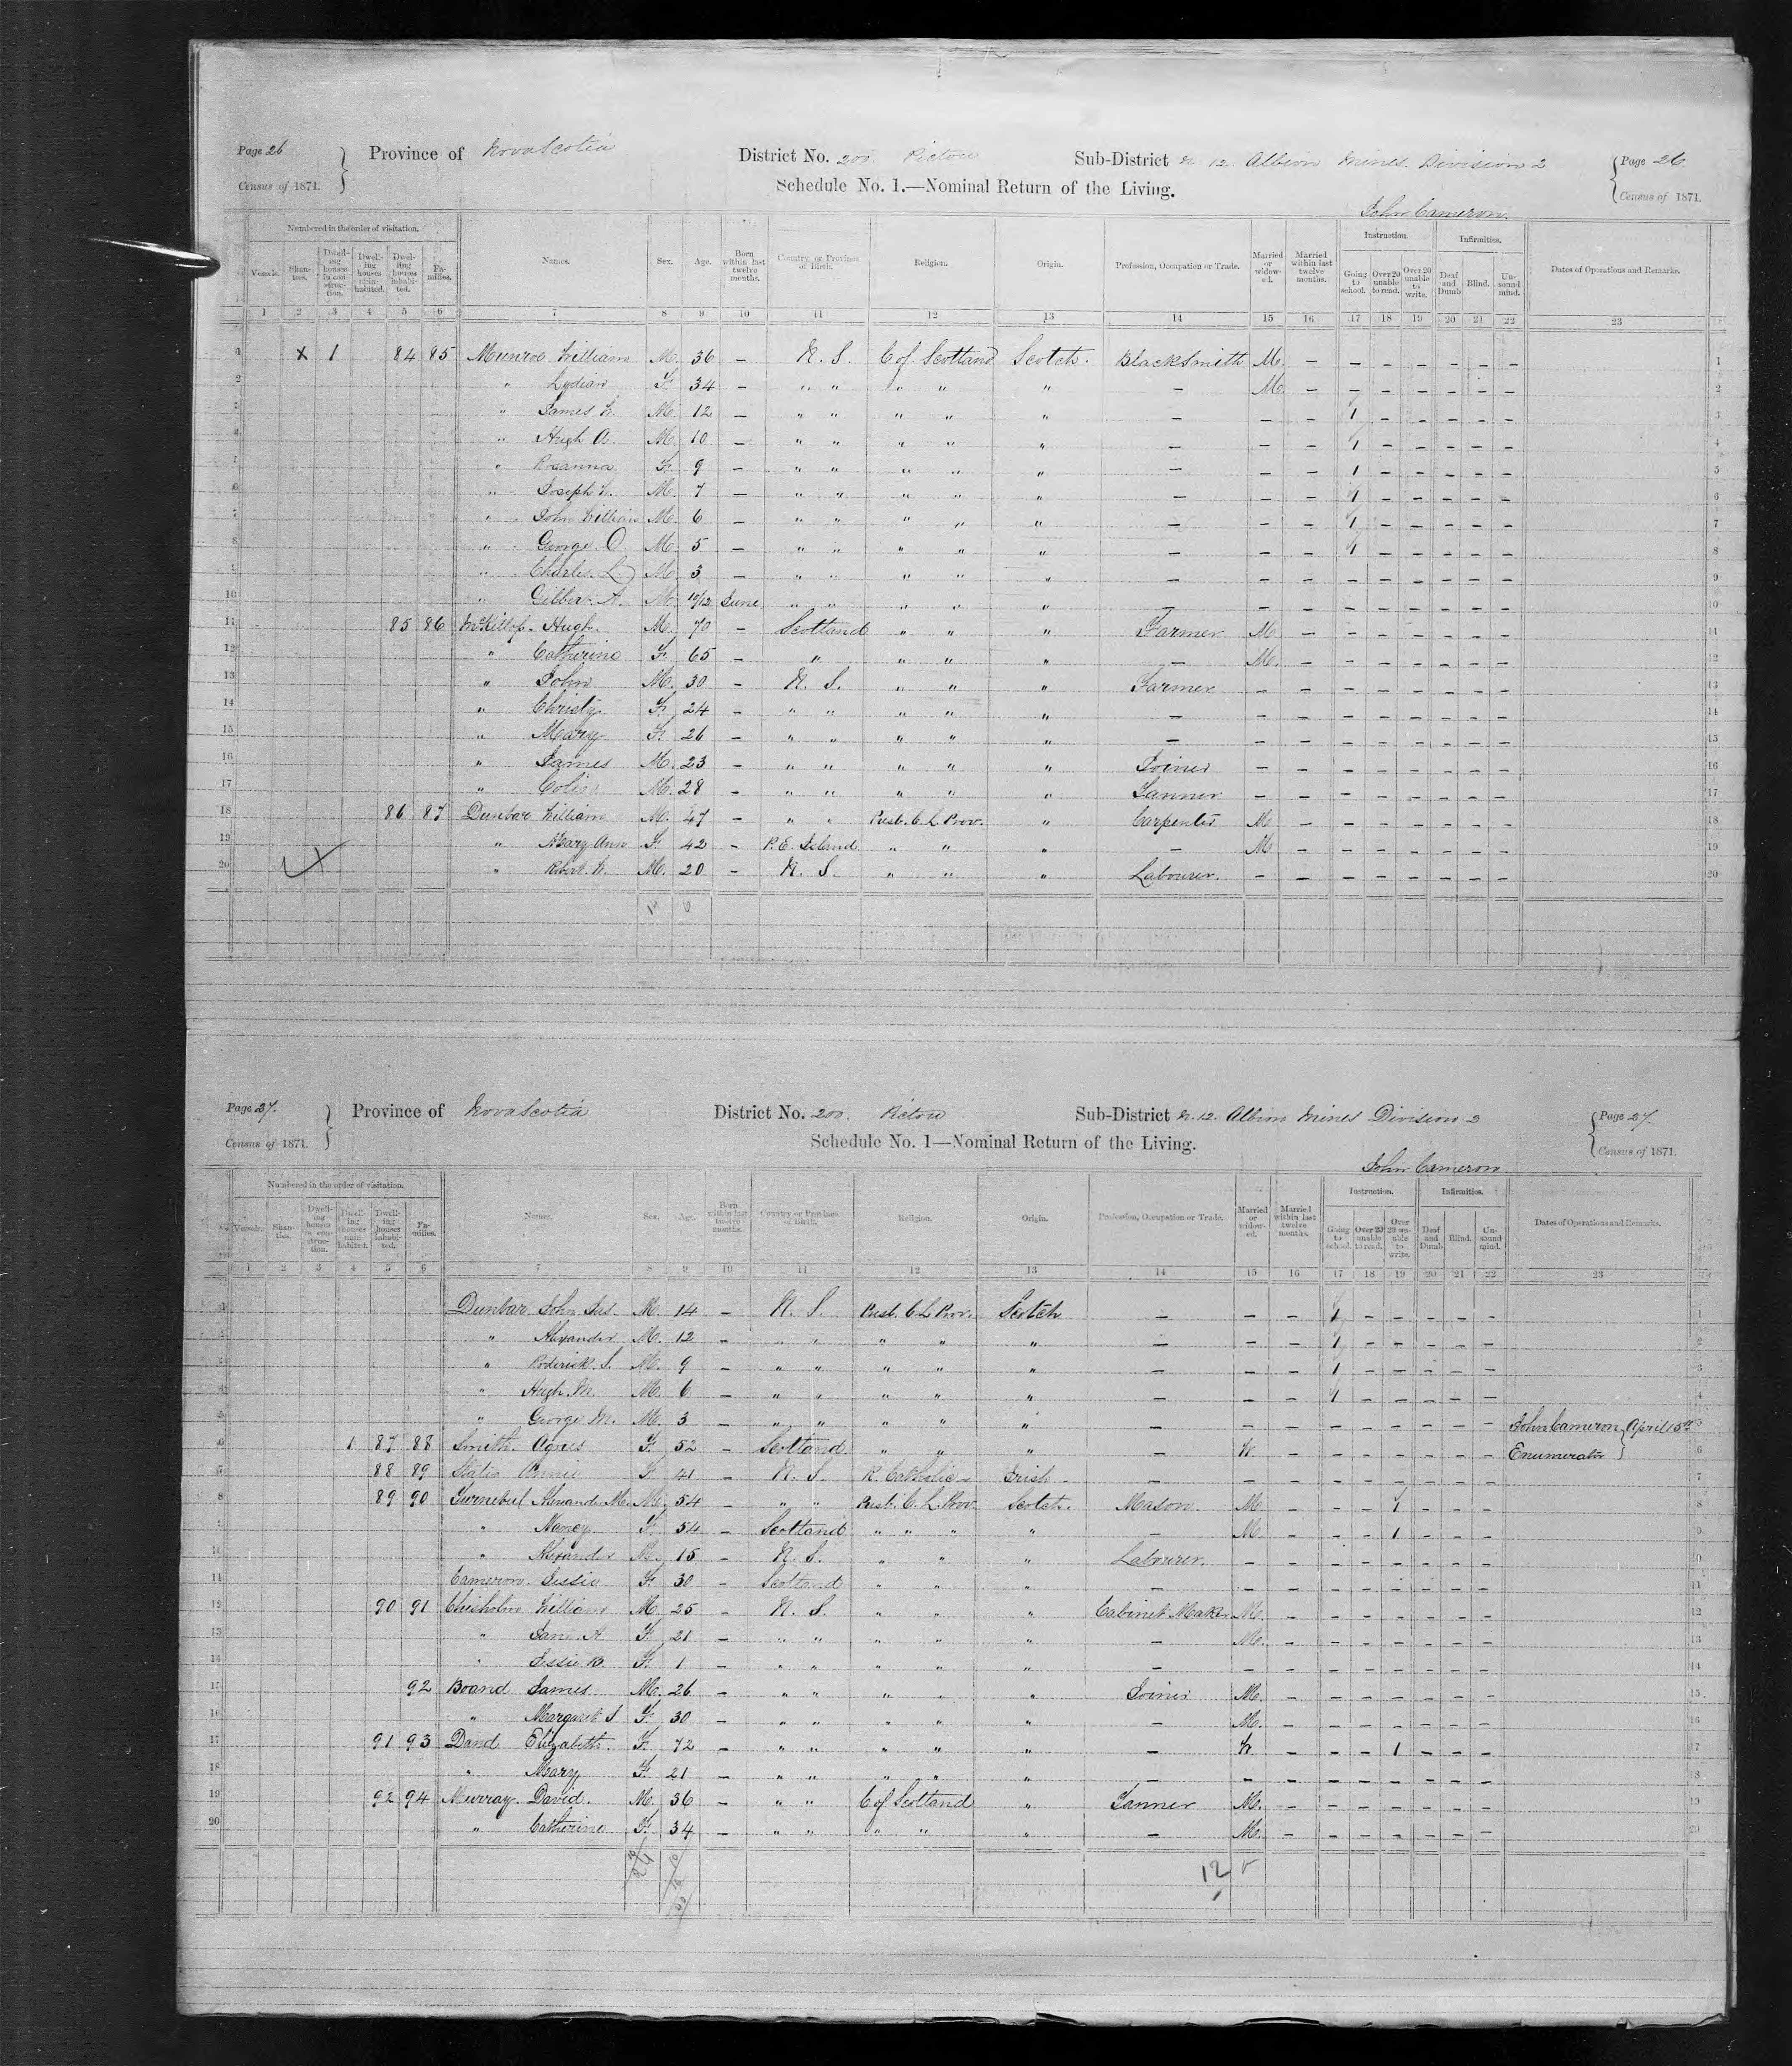 Page 26 Province of Nova Scotia District No. 200. Pictou Sub-District N 12. Albion Mines. Division 2 Page 26
Census of 1871. Schedule No. 1.—Nominal Return of the Living. Census of 1871.
John Cameron.
Numbered in the order of visitation. Instruction. Infirmities.
Vessels. Shanties. Dwelling houses in construction. Dwelling houses uninhabited. Dwelling houses inhabited. Families. Names. Sex. Age. Born within last twelve months. Country, or Province of Birth. Religion. Origin. Profession, Occupation or Trade. Married or widowed. Married within last twelve months. Going to school. Over 20 unable to read. Over 20 unable to write. Deaf and Dumb Blind. Unsound mind. Dates of Operations and Remarks.
1 2 3 4 5 6 7 8 9 10 11 12 13 14 15 16 17 18 19 20 21 22 23
X 1 84 85 Munroe William M. 36 – N. S. C of Scotland Scotch. BlackSmith M. – – – – – – – 1
2 " Lydian F. 34 – " " " " " – M. – – – – – – – 2
3 " James W. M. 12 – " " " " " – – – 1 – – – – – 3
4 " Hugh A. M. 10 – " " " " " – – – 1 – – – – – 4
5 " Roxannoa F. 9 – " " " " " – – – 1 – – – – – 5
6 " Joseph W. M. 7 – " " " " " – – – 1 – – – – – 6
7 " John William M. 6 – " " " " " – – – 1 – – – – – 7
8 " George. O. M. 5 – " " " " " – – – 1 – – – – – 8
9 " Charles. L M. 3 – " " " " " – – – – – – – – – 9
10 " Gilbert A. M. 10/12 June " " " " " – – – – – – – – – 10
11 85 86 McKillop. Hugh. M. 70 – Scotland " " " Farmer M. – – – – – – – 11
12 " Catherine F. 65 – " " " " – M. – – – – – – – 12
13 " John M. 30 – N. S. " " " Farmer – – – – – – – – 13
14 " Christy F. 24 – " " " " " – – – – – – – – – 14
15 " Mary F. 26 – " " " " " – – – – – – – – – 15
16 " James M. 23 – " " " " " Joiner – – – – – – – – 16
17 " Colin M. 28 – " " " " " Tanner – – – – – – – – 17
18 86 87 Dunbar William M. 47 – " " Presb. C. L. Prov. " Carpenter M – – – – – – – 18
19 " Mary Ann F. 42 – P. E. Island " " " – M – – – – – – – 19
20 " Robert. W. M. 20 – N. S. " " " Labourer. – – – – – – – – 20
14 6
Page 27. Province of Nova Scotia District No. 200. Pictou Sub-District N. 12. Albion Mines Division 2 Page 27.
Census of 1871. Schedule No. 1—Nominal Return of the Living. Census of 1871.
John Cameron
Numbered in the order of visitation. Instruction. Infirmities.
Vessels. Shanties. Dwelling houses in construction. Dwelling houses uninhabited. Dwelling houses inhabited. Families. Names. Sex. Age. Born within last twelve months. Country, or Province of Birth. Religion. Origin. Profession, Occupation or Trade. Married or widowed. Married within last twelve months. Going to school. Over 20 unable to read. Over 20 unable to write. Deaf and Dumb Blind. Unsound mind. Dates of Operations and Remarks.
1 2 3 4 5 6 7 8 9 10 11 12 13 14 15 16 17 18 19 20 21 22 23
Dunbar John Jas. M. 14 – N. S. Presb. C. L Prov. Scotch – – – 1 – – – – – 1
" Alexander M. 12 – " " " " " – – – 1 – – – – – 2
" Roderick. S. M. 9 – " " " " " – – – 1 – – – – – 3
" Hugh. M. M. 6 – " " " " " – – – 1 – – – – – 4
" George. M. M. 3 – " " " " " – – – – – – – – – John Cameron April 15th 5
1 87 88 Smith. Agnes F. 52 – Scotland " " " – W. – – – – – – – Enumerator 6
88 89 Annie F. 41 – N. S. R. Catholic Irish – – – – – – – – – 7
8 89 90 Alexander M. M. 54 – " " Presb. C. L. Prov. Scotch. Mason. M – – – 1 – – – 8
9 " Nancy F. 54 – Scotland " " " " – M. – – – 1 – – – 9
10 " Alexander M. 15 – N. S. " " " Labourer. – – – – – – – – 10
11 Cameron. Jessie F. 30 – Scotland " " " – – – – – – – – – 11
12 90 91 Chisholm William M. 25 – N. S. " " " Cabinet Maker M. – – – – – – – 12
13 " Jane. A F. 21 – " " " " " – M. – – – – – – – 13
14 " Jessie B. F. 1 – " " " " " – – – – – – – – – 14
15 92 Boand James M. 26 – " " " " " Joiner M. – – – – – – – 15
16 " Margaret S F. 30 – " " " " " – M. – – – – – – – 16
17 91 93 Dand Elizabeth. F. 72 – " " " " " – W – – – 1 – – – 17
18 " Mary F. 21 – " " " " " – – – – – – – – – 18
19 92 94 Murray. David. M. 36 – " " C of Scotland " Tanner M. – – – – – – – 19
20 " Catherine F. 34 – " " " " " – M. – – – – – – – 20
12